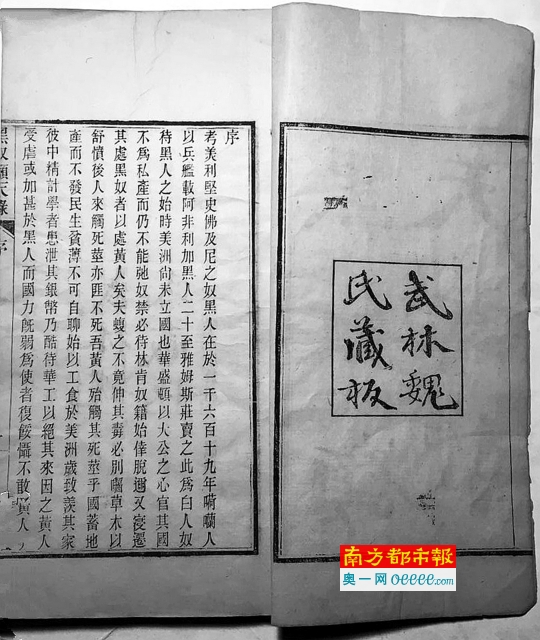 武林魏
氏藏板
序
考美利堅史佛及尼之奴黑人在於一千六百十九年嗬囒人
以兵艦載阿非利加黑人二十至雅姆斯莊賣之此為白人奴
待黑人之始時美洲尚未立國也華盛頓以大公之心官其國
不為私產而仍不能弛奴禁必待林肯奴籍始倖脫邇又寖遷
其處黑奴者以處黃人矣夫蝮之不竟伸其毒必別囓草木以
舒憤後人來觸死莖亦匪不死吾黃人殆觸其死莖乎國蓄地
產而不發民生貧薄不可自聊始以工食於美洲歲致羨其家
彼中精計學者患泄其銀幣乃酷待華工以絕其來因之黃人
受虐或加甚於黑人而國力既弱為使者復餒懾不敢
黑奴籲天錄 序
南方都市報
奥一网 oeeee.com